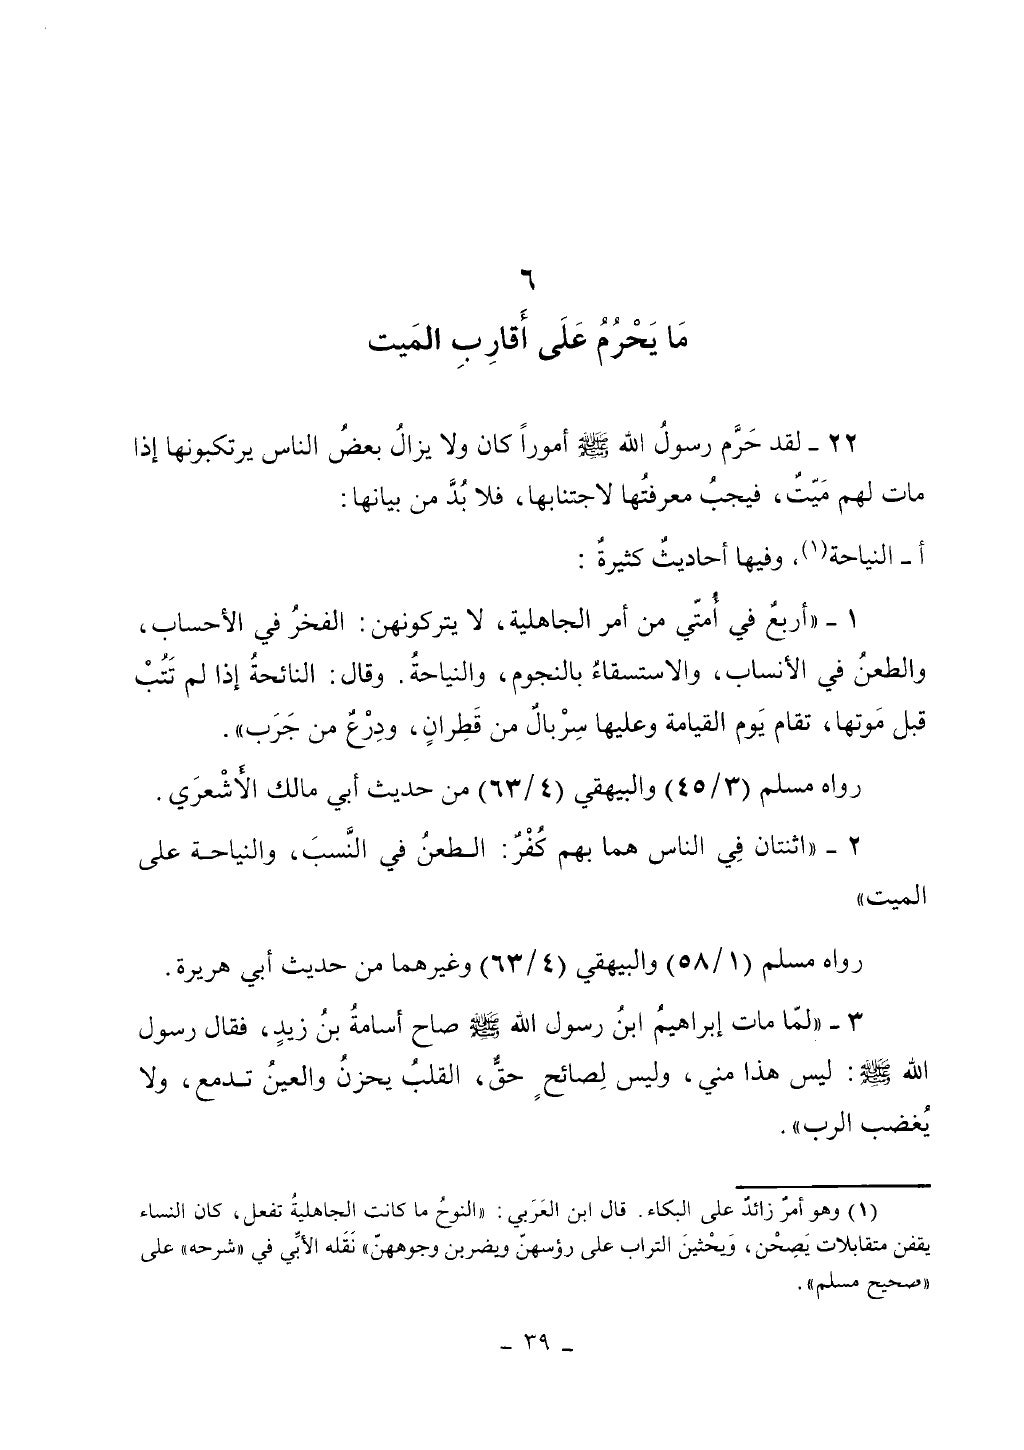 ٦
مَا يَحْرُمُ عَلَى أَقارِبِ المَيت
٢٢ ـ لقد حَرَّم رسولُ الله ﷺ أموراً كان ولا يزالُ بعضُ الناس يرتكبونها إذا
مات لهم مَيّتٌ، فيجبُ معرفتُها لاجتنابها، فلا بُدَّ من بيانها:
أ ـ النياحة(١)، وفيها أحاديثٌ كثيرةٌ :
١ ـ «أربعٌ في أُمتّي من أمر الجاهلية، لا يتركونهن: الفخرُ في الأحساب،
والطعنُ في الأنساب، والاستسقاءُ بالنجوم، والنياحةُ. وقال: النائحةُ إذا لم تَتُبْ
قبل مَوتها، تقام يَوم القيامة وعليها سِرْبالٌ من قَطِرانٍ، ودِرْعٌ من جَرَب».
رواه مسلم (٤٥/٣) والبيهقي (٦٣/٤) من حديث أبي مالك الأَشْعرَي.
٢ ـ «اثنتان فِي الناس هما بهم كُفْرٌ: الطعنُ في النَّسبَ، والنياحة على
الميت»
رواه مسلم (٥٨/١) والبيهقي (٦٣/٤) وغيرهما من حديث أبي هريرة.
٣ ـ «لمّا مات إبراهيمُ ابنُ رسول الله ﷺ صاح أسامةُ بنُ زيدٍ، فقال رسول
الله ﷺ: ليس هذا مني، وليس لِصائحٍ حقٌّ، القلبُ يحزنُ والعينُ تدمع، ولا
يُغضب الرب».
(١) وهو أمرٌ زائدٌ على البكاء. قال ابن العَرَبي: «النوحُ ما كانت الجاهليةُ تفعل، كان النساء
يقفن متقابلات يَصِحْن، وَيَحْثينَ التراب على رؤسهنّ ويضربن وجوههنّ» نَقَله الأبِّي في «شرحه» على
«صحيح مسلم».
ـ ٣٩ ـ